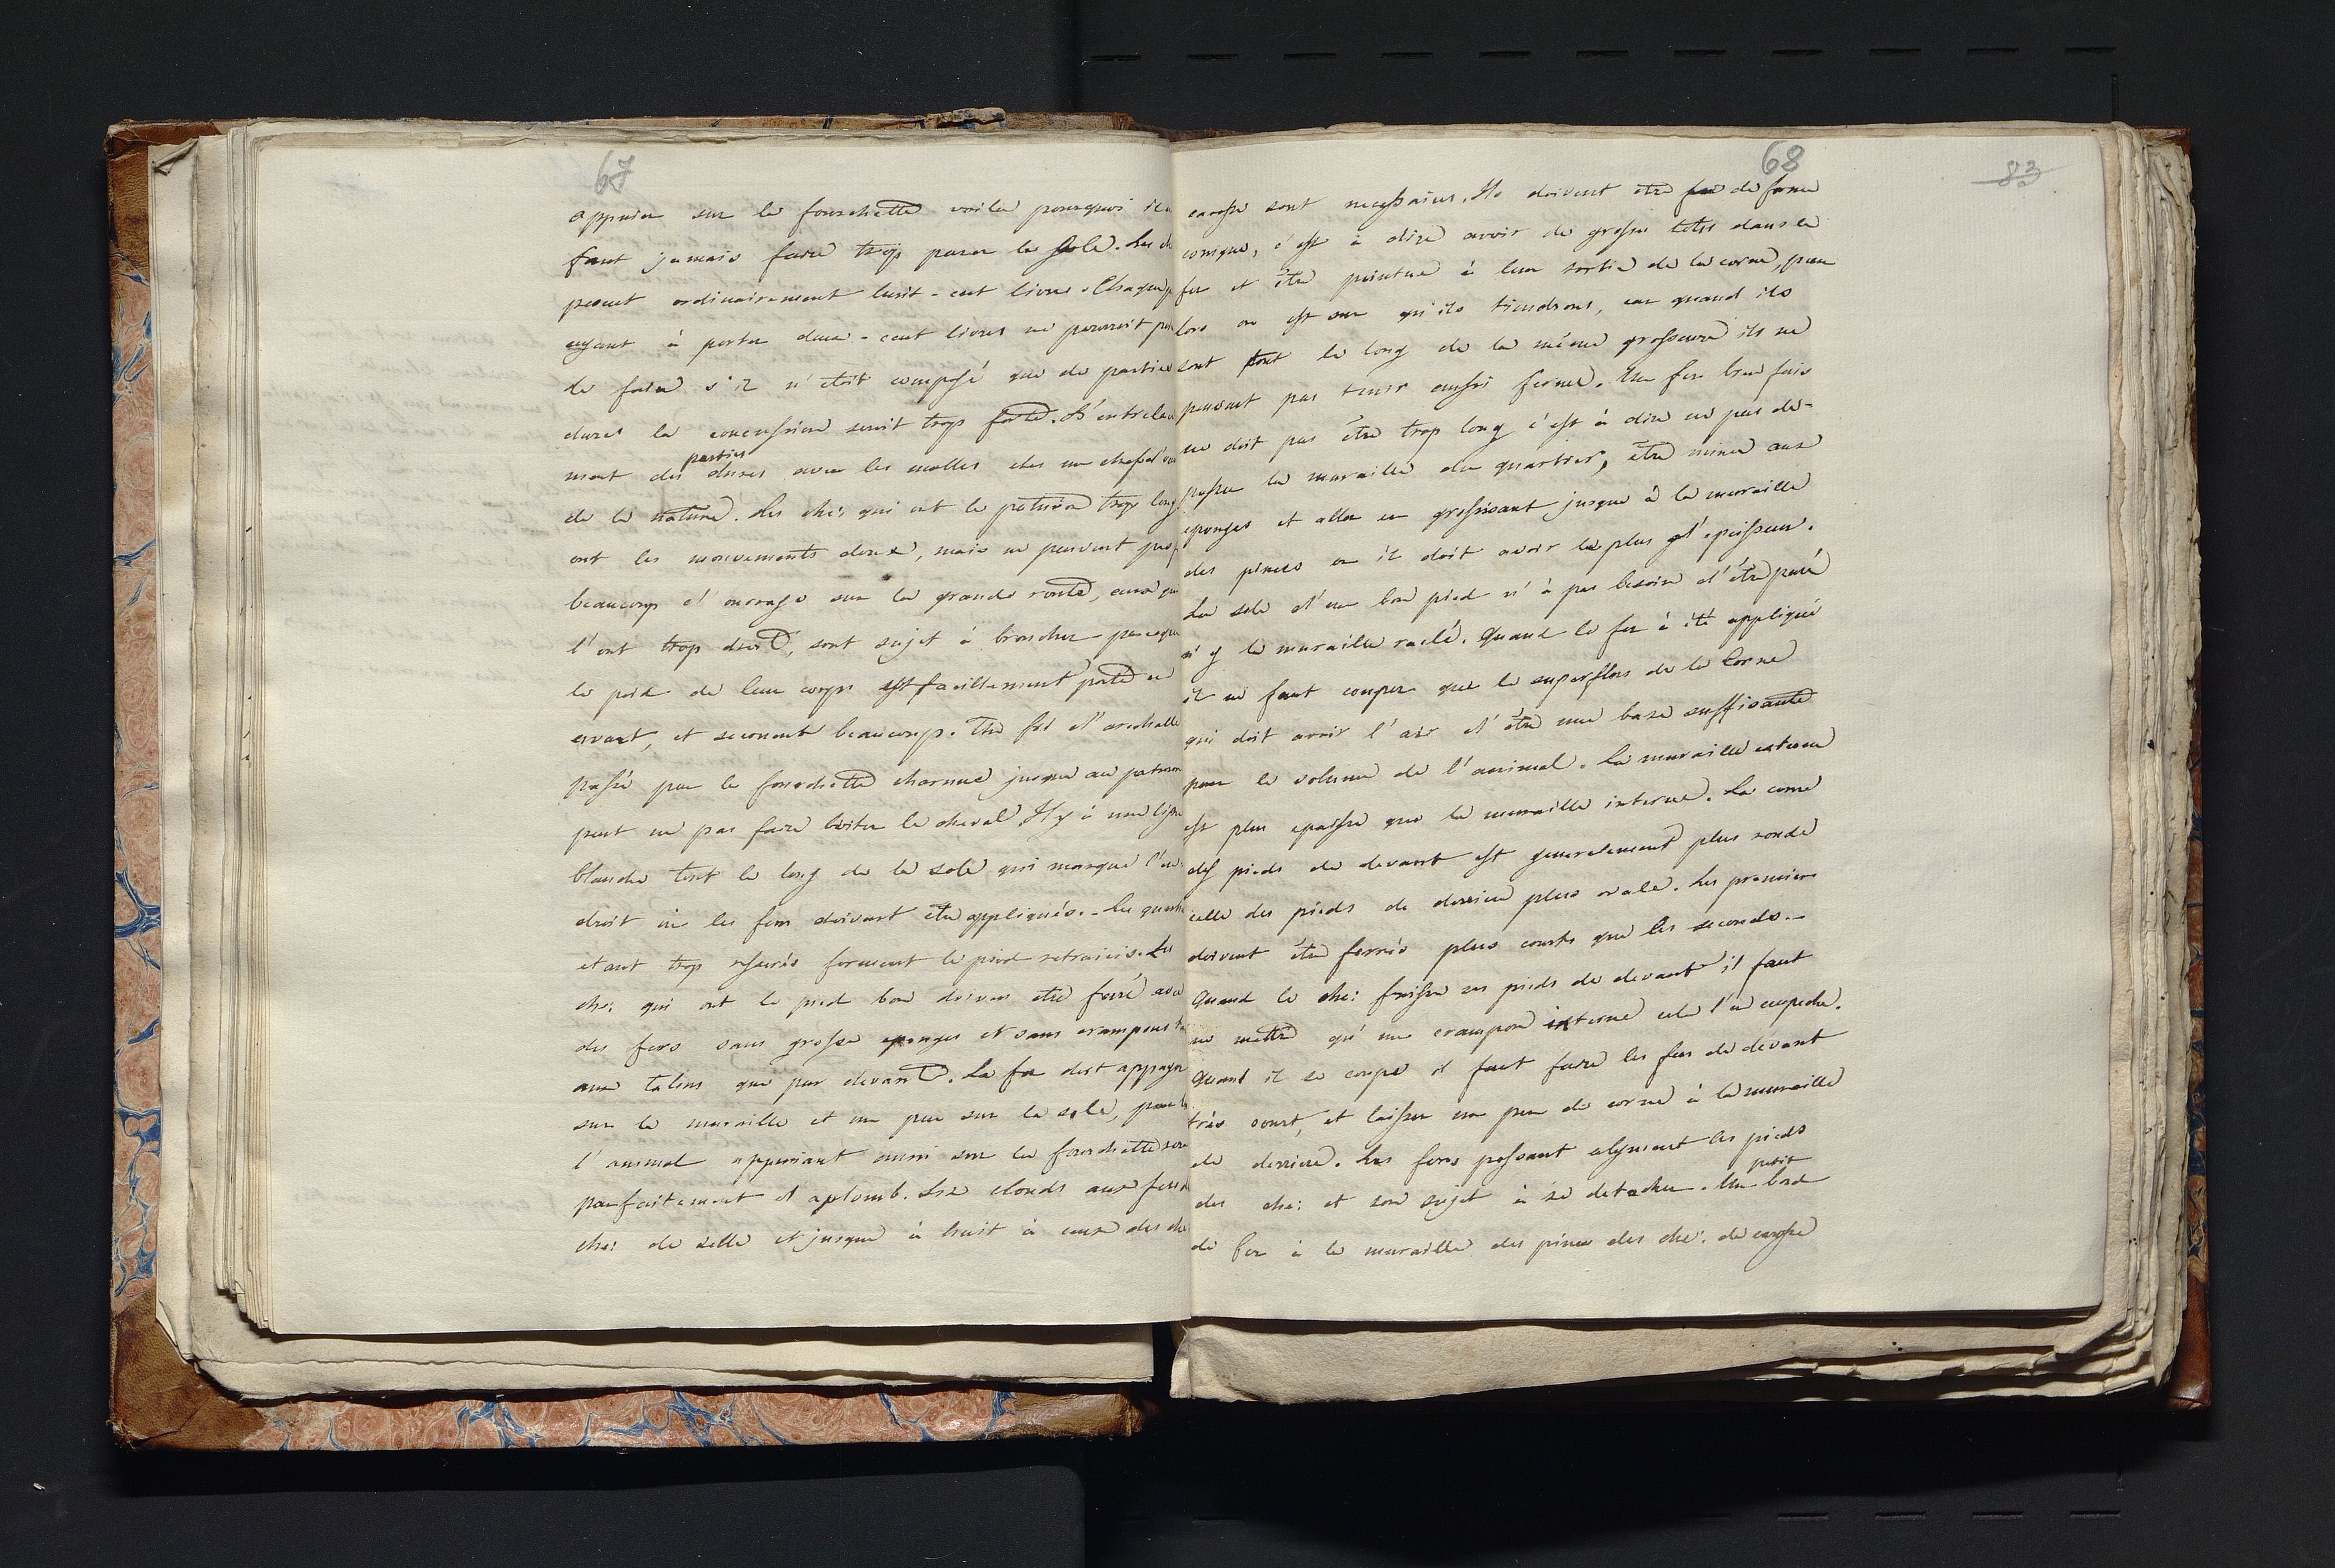 67
appuier sur la fourchette voila pourquoi il n
faut jamais faire trop parer la sole. Les ch
pesent ordinairement huit-cent livres. Chaque p
ayant à porter deux-cent livres ne pourroit
de faire s'il n'étoit composé que de parties
dures la concussion seroit trop forte. L'entrela
ment des parties dures avec les molles est un chefd'
de la nature. Les che: qui ont le paturon trop long
ont les mouvements doux, mais ne peuvent pas
beaucoup d'ouvrage sur la grande route, ceux qui
l'ont trop droit, sont sujet à broncher parceque
le poid de leur corps est facillement porté en
avant, et secouent beaucoup. Un fil d'archalle
passé par la fourchette charnue jusque au paturon
peut ne pas faire boiter le cheval. Il y à une ligne
blanche tout le long de la sole qui marque l'en
droit ou les fers doivent être appliqués. Les quart
etant trop reserés forment le pied retraicis. Les
che: qui ont le pied bon doivent etre ferré avec
des fers sans grosse eponges et sans crampons
aux talons que par devant. Le fer doit appuyer
sur la muraille et un peu sur la sole, pour
l'animal appuiant aussi sur la fourchette
parfaitement d'aplomb. Six clouds aux fers
che: de selle et jusque à huit à ceux des che
68
83
carosse sont necessaires. Ils doivent être de forme
conique, c'est à dire avoir de grosses tetes dans le
fer et être pointue à leur sortie de la corne, pour
lors on est sur qu'ils tiendront, car quand ils
sont tout le long de la même grosseure ils ne
peuvent pas tenir aussi ferme. Un fer bien fait
ne doit pas être trop long c'est à dire ne pas de-
passer la muraille du quartier, être mince aux
eponges et aller en grossissant jusque à la muraille
des pinces ou il doit avoir le plus d'epaisseur.
La sole d'un bon pied n'à pas besoin d'être paré
n'y la muraille raclé. Quand le fer à été appliqué
il ne faut couper que le superflus de la Corne
qui doit avoir l'air d'être une base suffisante
pour le volume de l'animal. La muraille externe
est plus epaisse que la muraille interne. La corne
des pieds de devant est generalement plus ronde
celle des pieds de derriere plus ovale. Les premiers
doivent être ferrés plus courts que les seconds.-
Quand le che: froisse ses pieds de devant il faut
ne mettre qu'un crampon interne cela l'en empeche.
Quand il se coupe il faut faire les fers de devant
très court, et laisser un peu de corne à la muraille
de derriere. Les fers les pieds
des che: et son sujet à se detacher. Un petit bord
de fer à la muraille des pinces des che: de carosse